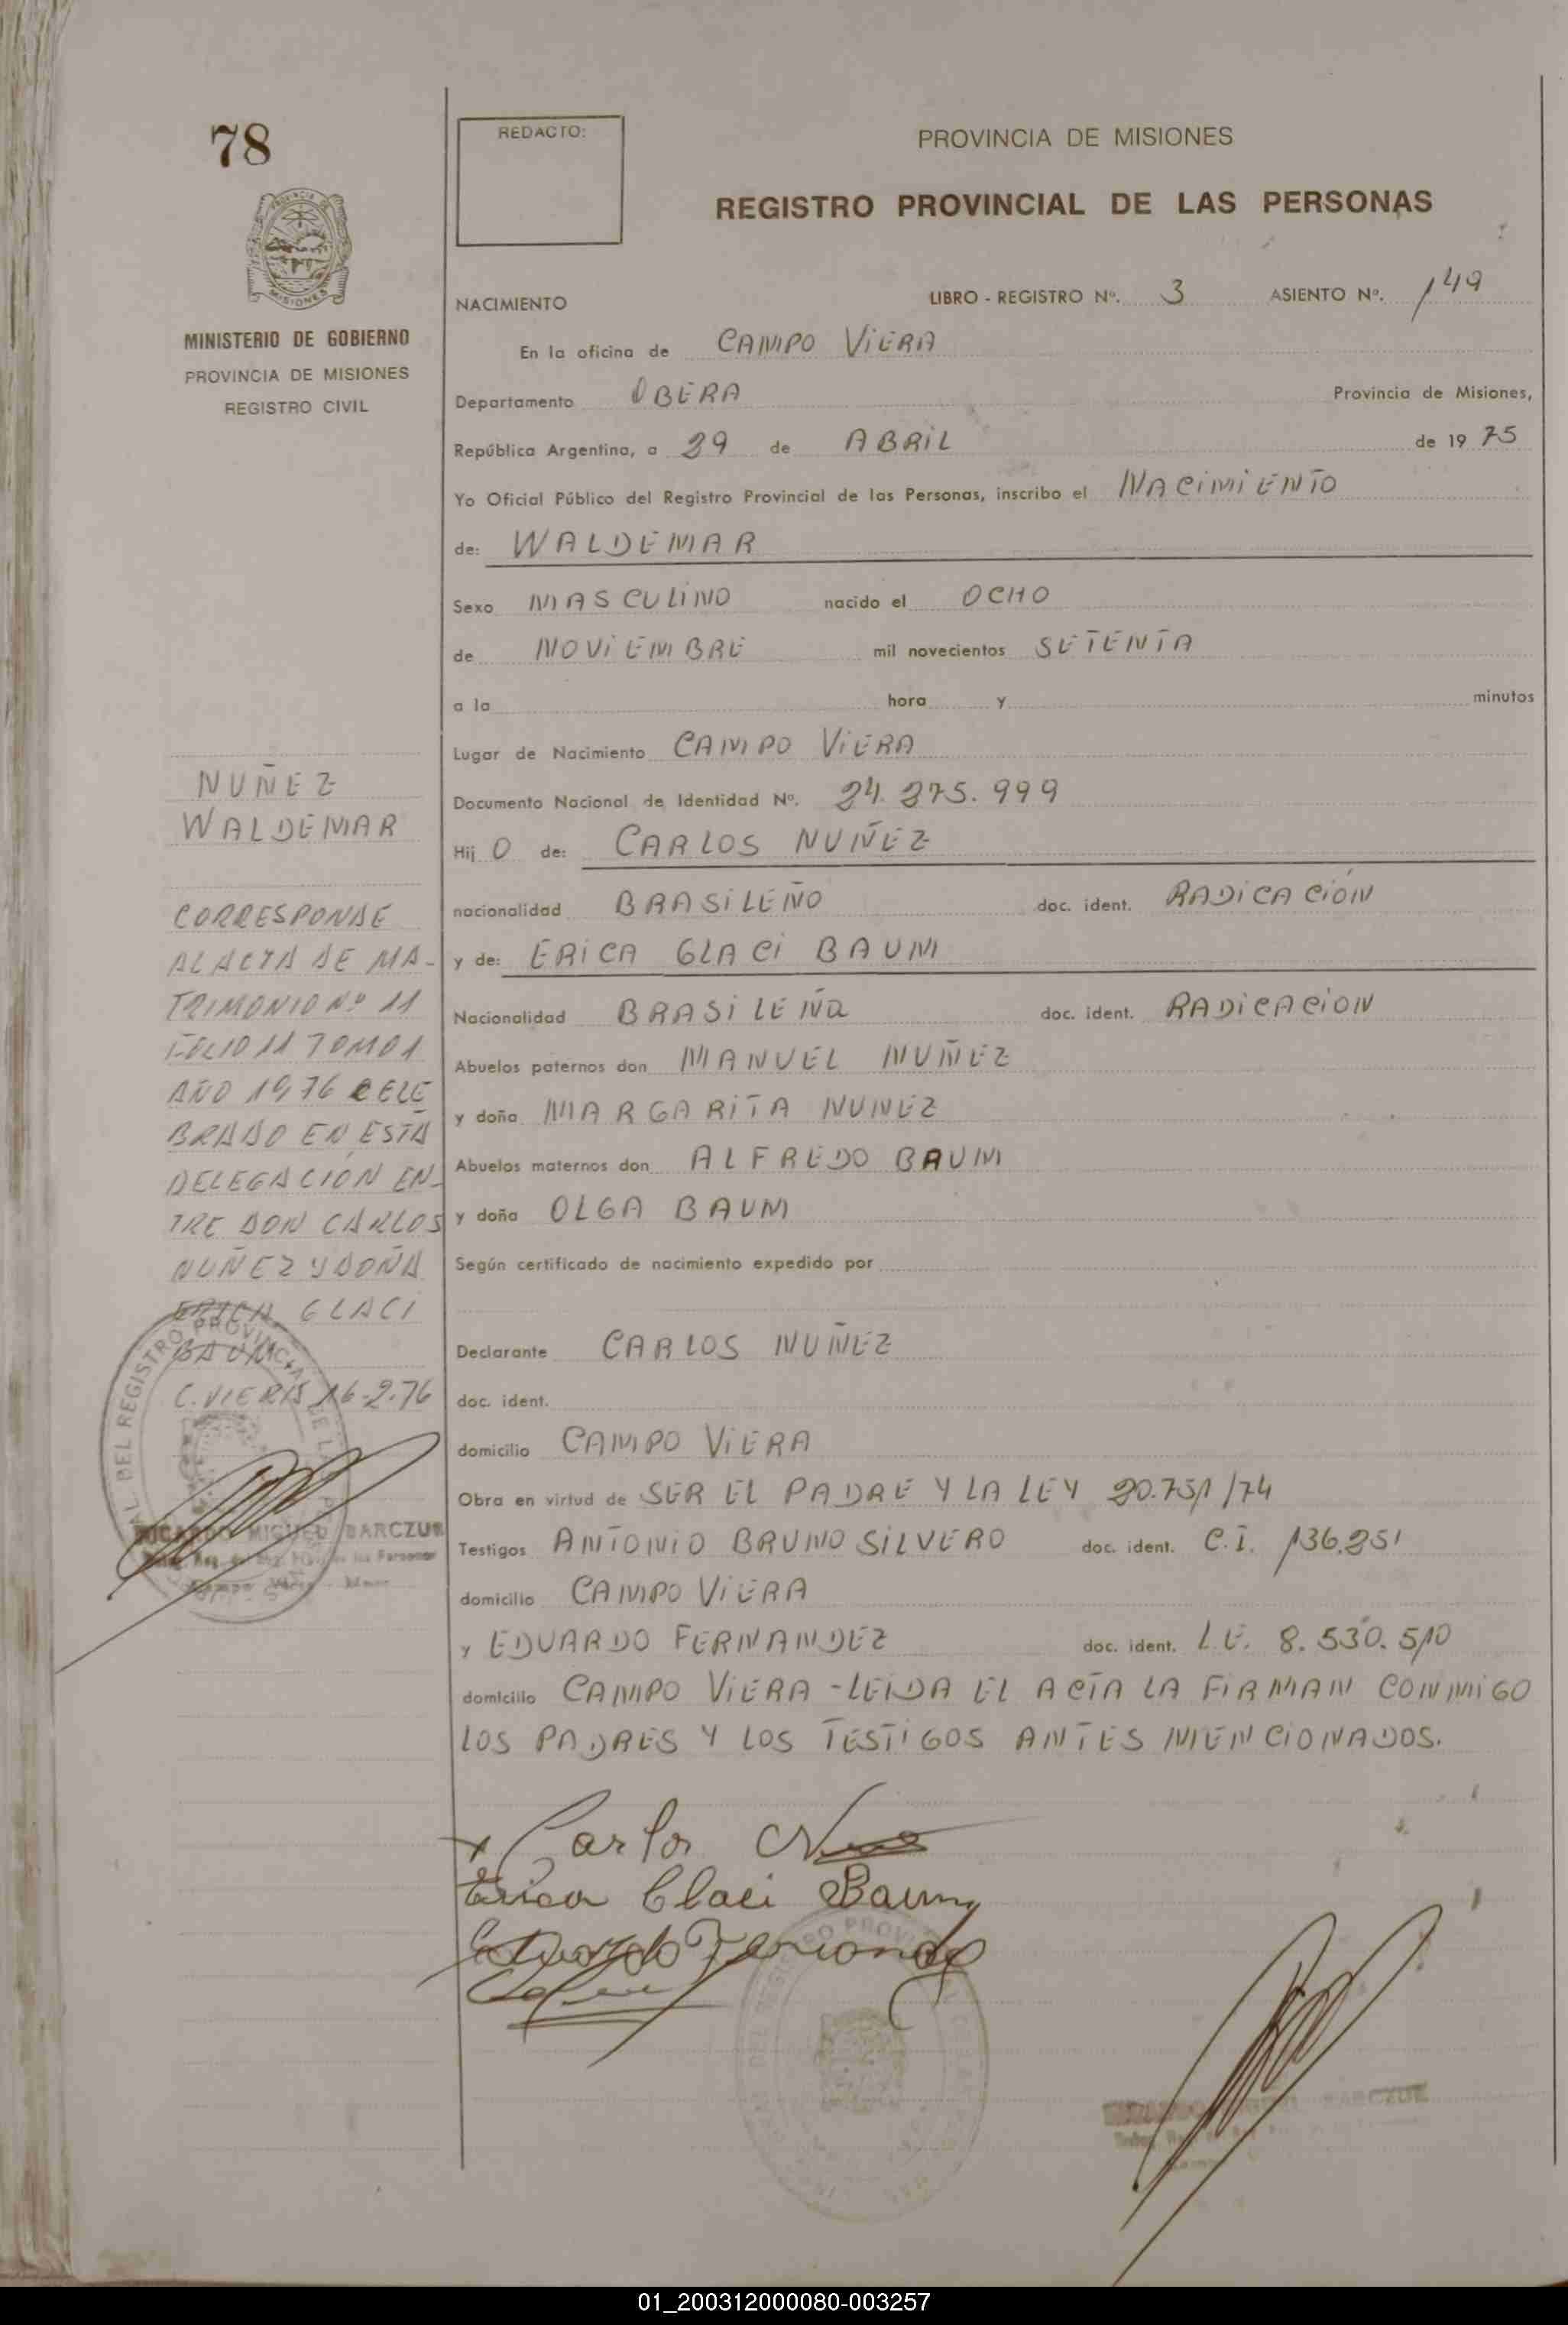 78
PROVINCIA DE
MISIONES
MINISTERIO DE GOBIERNO
PROVINCIA DE MISIONES
REGISTRO CIVIL
REDACTO:
PROVINCIA DE MISIONES
REGISTRO PROVINCIAL DE LAS PERSONAS
NACIMIENTO LIBRO - REGISTRO Nº. 3 ASIENTO Nº. 149
En la oficina de CAMPO VIERA
Departamento OBERA Provincia de Misiones,
República Argentina, a 29 de ABRIL de 19 75
Yo Oficial Público del Registro Provincial de las Personas, inscribo el NACIMIENTO
de: WALDEMAR
Sexo MASCULINO nacido el OCHO
de NOVIEMBRE mil novecientos SETENTA
a la hora y minutos
Lugar de Nacimiento CAMPO VIERA
Documento Nacional de Identidad Nº. 24.275.999
Hij O de: CARLOS NUÑEZ
nacionalidad BRASILEÑO doc. ident. RADICACIÓN
y de: ERICA GLACI BAUM
Nacionalidad BRASILEÑA doc. ident. RADICACION
Abuelos paternos don MANUEL NUÑEZ
y doña MARGARITA NUNEZ
Abuelos maternos don ALFREDO BAUM
y doña OLGA BAUM
Según certificado de nacimiento expedido por
Declarante CARLOS NUÑEZ
doc. ident.
domicilio CAMPO VIERA
Obra en virtud de SER EL PADRE Y LA LEY 20.751/74
Testigos ANTONIO BRUNO SILVERO doc. ident. C.I. 136.251
domicilio CAMPO VIERA
y EDUARDO FERNANDEZ doc. ident. L.E. 8.530.510
domicilio CAMPO VIERA - LEIDA EL ACTA LA FIRMAN CONMIGO
LOS PADRES Y LOS TESTIGOS ANTES MENCIONADOS.
Carlos
Erica Glaci Baum
Eduardo Fernandez
NUÑEZ
WALDEMAR
CORRESPONDE
AL ACTA DE MA-
TRIMONIO Nº 11
FOLIO 11 TOMO 1
AÑO 1976 CELE
BRADO EN ESTA
DELEGACIÓN EN-
TRE DON CARLOS
NUÑEZ Y DOÑA
ERICA GLACI
BAUM.
C. VIERA 16-2-76
DEL REGISTRO PROVINCIAL DE
RICARDO MIGUEL BARCZUK
BARCZUK
01_200312000080-003257